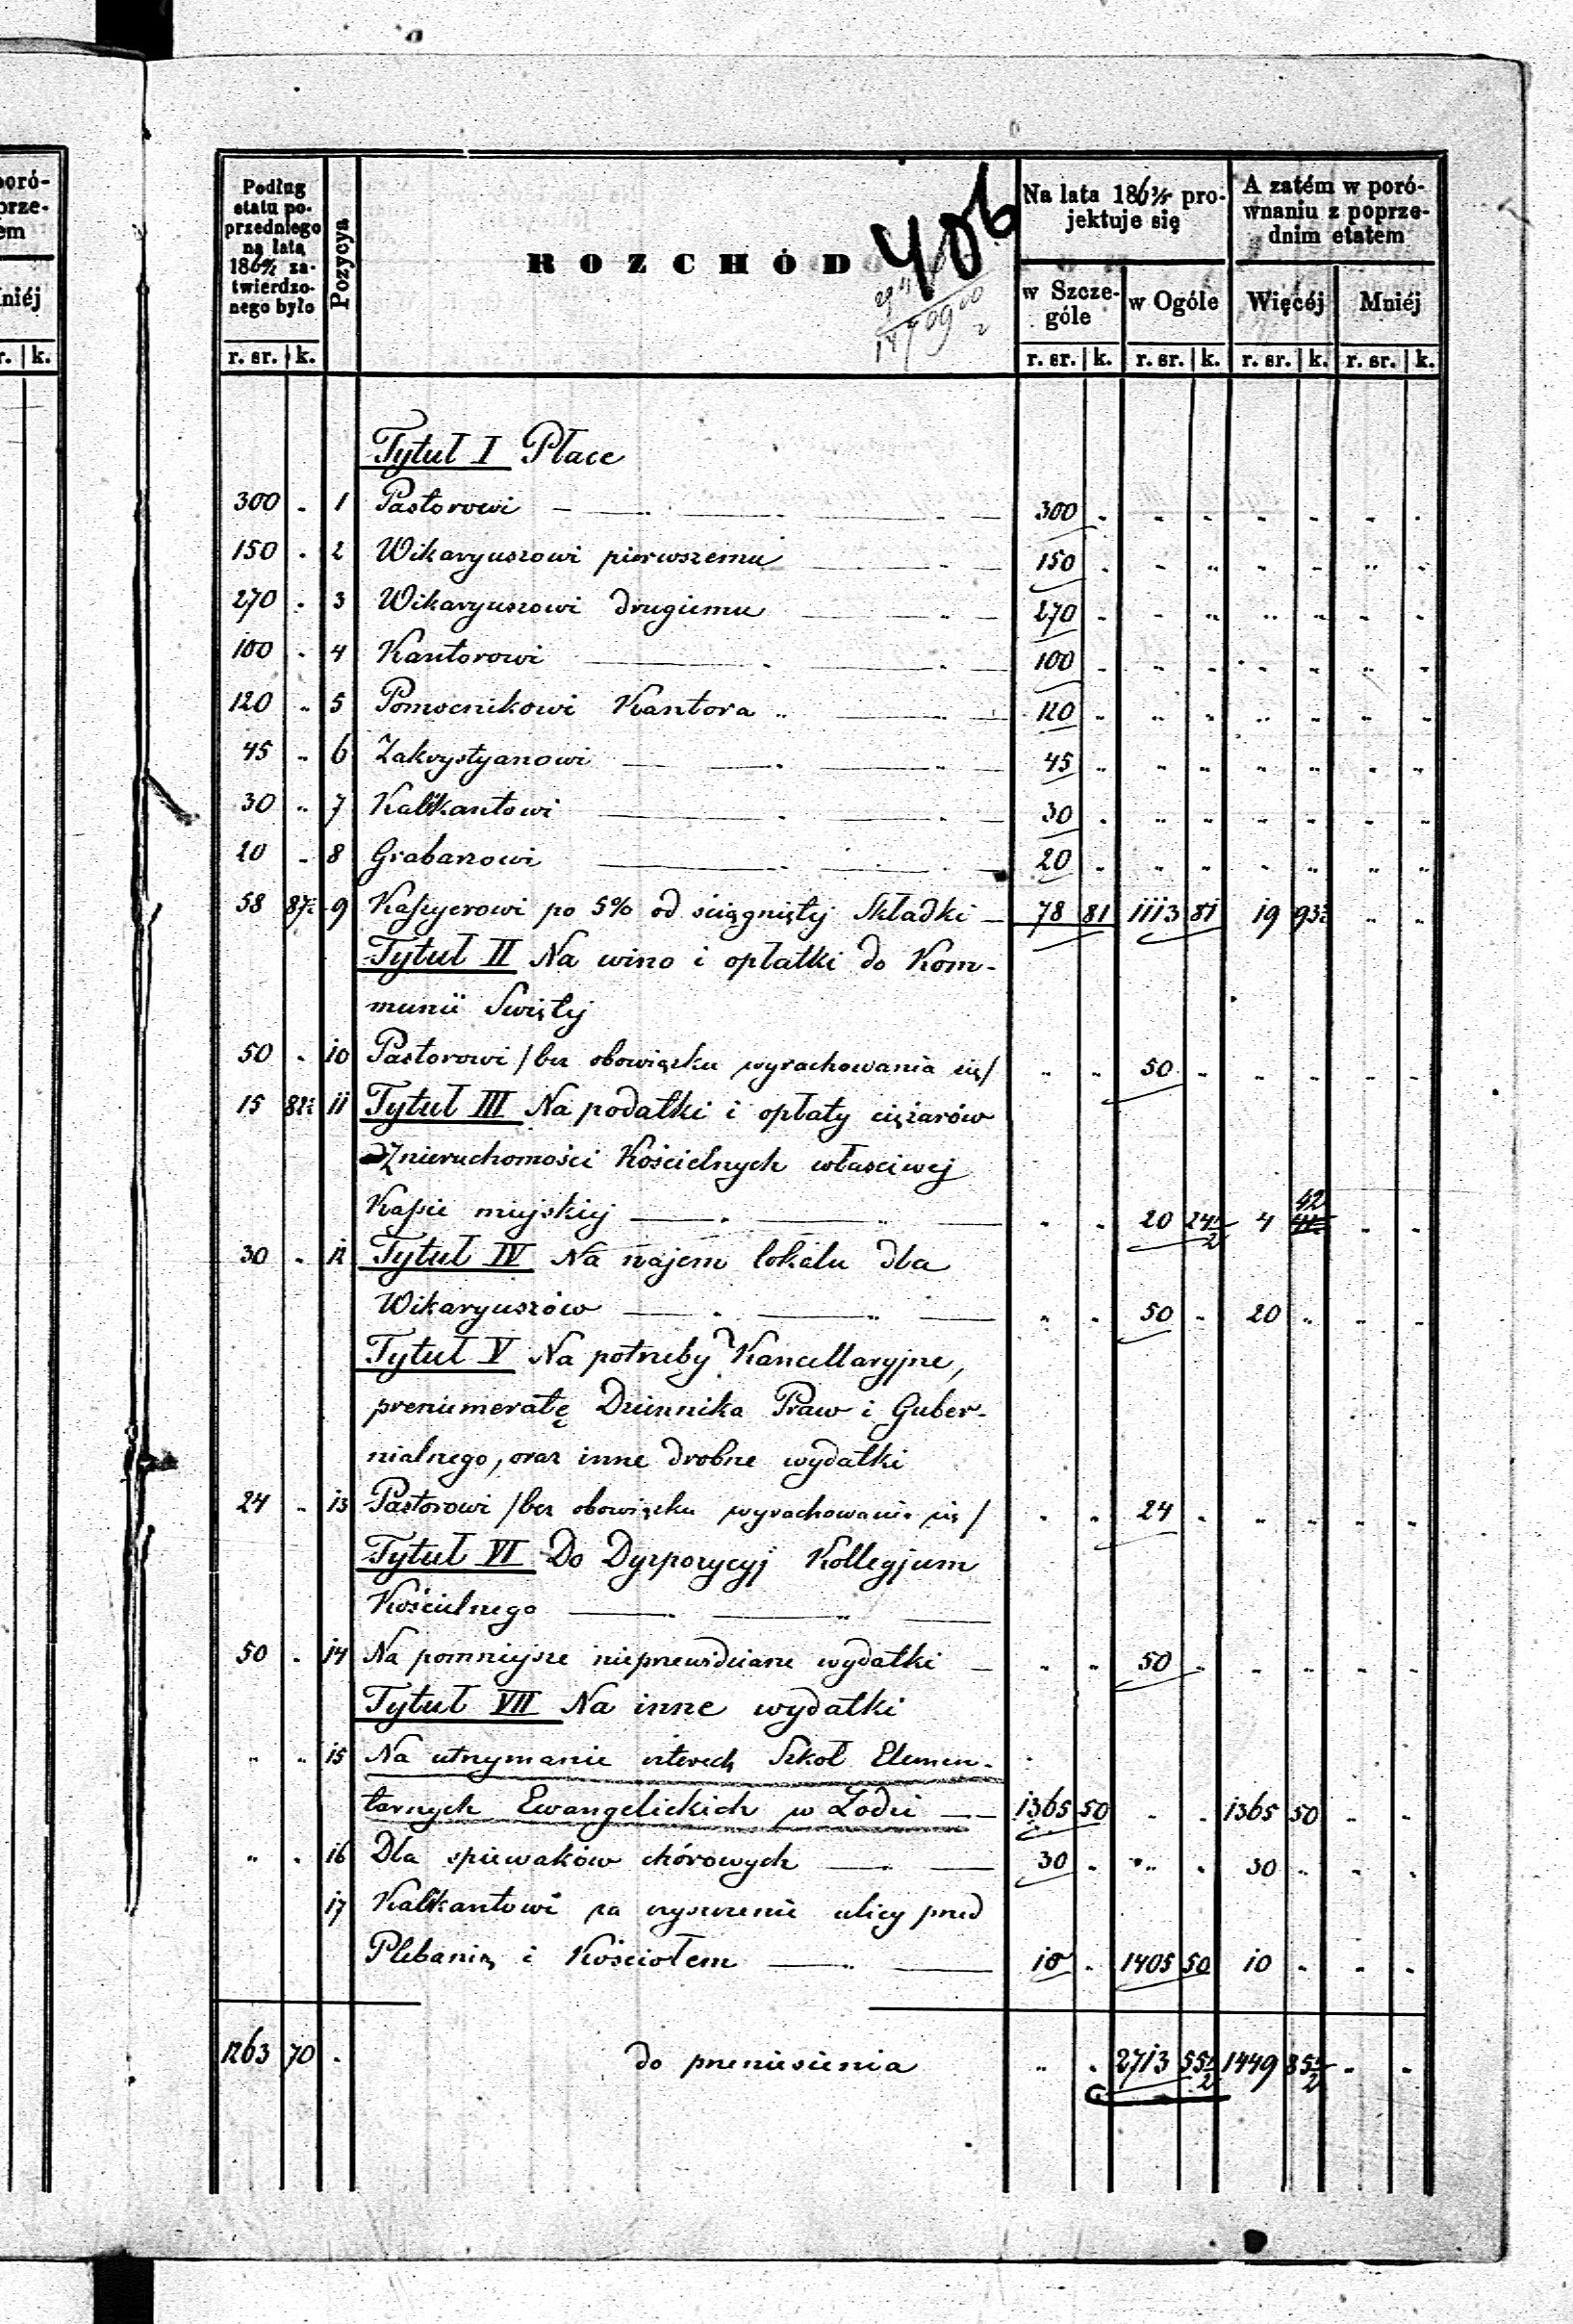 oró-
orze-
em
niéj
r. | k.
Podług
etatu po-
przedniego
na lata
186 za-
twierdzo-
nego było
r. sr. | k.
Pozycya
ROZCHÓD
406
Na lata 186 pro-
jektuje się
w Szcze-
góle
w Ogóle
r. sr. | k. r. sr. | k.
A zatém w poró-
wnaniu z poprze-
dnim etatem
Więcéj Mniéj
r. sr. | k. r. sr. | k.
Tytuł I Płace
300 " 1 Pastorowi 300 "
150 " 2 Wikaryuszowi pierwszemu 150 "
270 " 3 Wikaryuszowi drugiemu 270 "
100 " 4 Kantorowi 100 "
120 " 5 Pomocnikowi Kantora 120 "
45 " 6 Zakrystyanowi 45 "
30 " 7 Kalikantowi 30 "
20 " 8 Grabarzowi 20 "
58 87½ 9 Kassyerowi po 5% od ściągniętej Składki 78 81 1113 81 19 93½
Tytuł II Na wino i opłatki do Kom-
munii Świętej
50 " 10 Pastorowi /bez obowiązku wyrachowania się/ 50 "
15 82½ 11 Tytuł III Na podatki i opłaty ciężarów
Z nieruchomości Kościelnych właściwej
Kassie miejskiej 20 24½ 4 42
30 " 12 Tytuł IV Na najem lokalu dla
Wikaryuszów 50 " 20 "
Tytuł V Na potrzeby Kancellaryjne,
prenumeratę Dziennika Praw i Guber-
nialnego, oraz inne drobne wydatki
24 " 13 Pastorowi /bez obowiązku wyrachowania się/ 24 "
Tytuł VI Do Dyspozycyj Kollegjum
Kościelnego
50 " 14 Na pomniejsze nieprzewidziane wydatki 50 "
Tytuł VII Na inne wydatki
" " 15 Na utrzymanie czterech Szkół Elemen-
tarnych Ewangelickich w Łodzi 1365 50 " " 1365 50
" " 16 Dla śpiewaków chórowych 30 " " " 30 "
17 Kalikantowi za czyszczenie ulicy przed
Plebanią i Kościołem 10 " 1405 50 10 "
1263 70 " do przeniesienia " " 2713 55½ 1449 85½